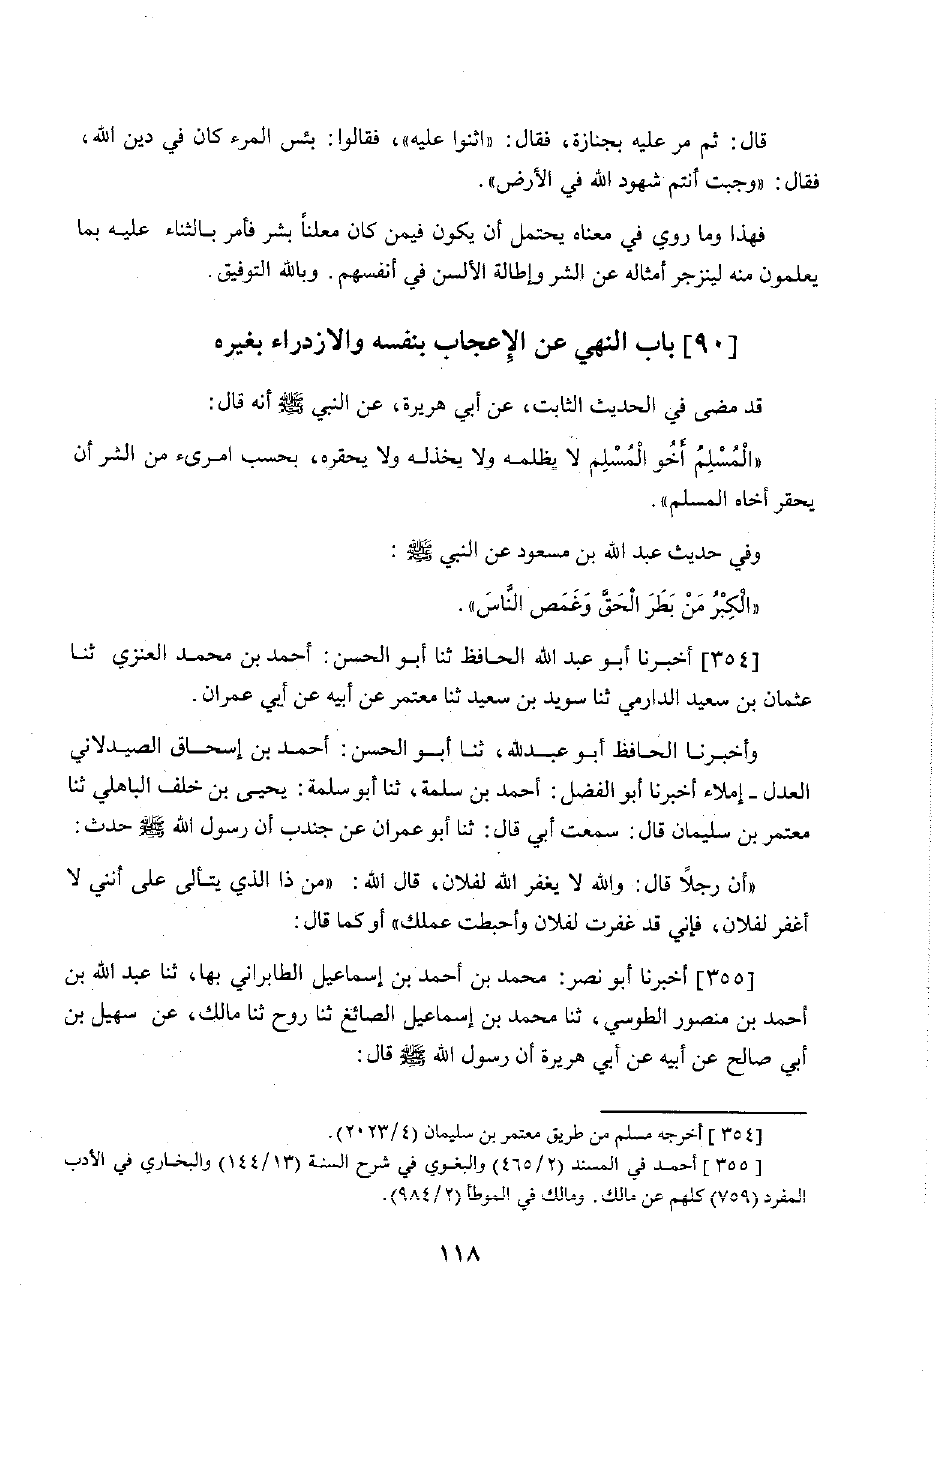 قال: ثم مر عليه بجنازة، فقال: «اثنوا عليه»، فقالوا: بئس المرء كان في دين الله،
فقال: «وجبت أنتم شهود الله في الأرض».
فهذا وما روي في معناه يحتمل أن يكون فيمن كان معلناً بشر فأمر بالثناء عليه بما
يعلمون منه لينزجر أمثاله عن الشر وإطالة الألسن في أنفسهم. وبالله التوفيق.
[٩٠] باب النهي عن الإعجاب بنفسه والازدراء بغيره
قد مضى في الحديث الثابت، عن أبي هريرة، عن النبي ﷺ أنه قال:
«الْمُسْلِمُ أَخُو الْمُسْلِمِ لا يظلمه ولا يخذله ولا يحقره، بحسب امرىء من الشر أن
يحقر أخاه المسلم».
وفي حديث عبد الله بن مسعود عن النبي ﷺ :
«الْكِبْرُ مَنْ بَطَرَ الْحَقَّ وَغَمَص النَّاسَ».
[٣٥٤] أخبرنا أبو عبد الله الحافظ ثنا أبو الحسن: أحمد بن محمد العنزي ثنا
عثمان بن سعيد الدارمي ثنا سويد بن سعيد ثنا معتمر عن أبيه عن أبي عمران.
وأخبرنا الحافظ أبو عبدلله، ثنا أبو الحسن: أحمد بن إسحاق الصيدلاني
العدل ـ إملاء أخبرنا أبو الفضل: أحمد بن سلمة، ثنا أبو سلمة: يحيى بن خلف الباهلي ثنا
معتمر بن سليمان قال: سمعت أبي قال: ثنا أبو عمران عن جندب أن رسول الله ﷺ حدث:
«أن رجلاً قال: والله لا يغفر الله لفلان، قال الله: «من ذا الذي يتألى على أنني لا
أغفر لفلان، فإني قد غفرت لفلان وأحبطت عملك» أو كما قال:
[٣٥٥] أخبرنا أبو نصر: محمد بن أحمد بن إسماعيل الطابراني بها، ثنا عبد الله بن
أحمد بن منصور الطوسي، ثنا محمد بن إسماعيل الصائغ ثنا روح ثنا مالك، عن سهيل بن
أبي صالح عن أبيه عن أبي هريرة أن رسول الله ﷺ قال:
[٣٥٤] أخرجه مسلم من طريق معتمر بن سليمان (٢٠٢٣/٤).
[٣٥٥] أحمد في المسند (٤٦٥/٢) والبغوي في شرح السنة (١٤٤/١٣) والبخاري في الأدب
المفرد (٧٥٩) كلهم عن مالك. ومالك في الموطأ (٩٨٤/٢).
١١٨